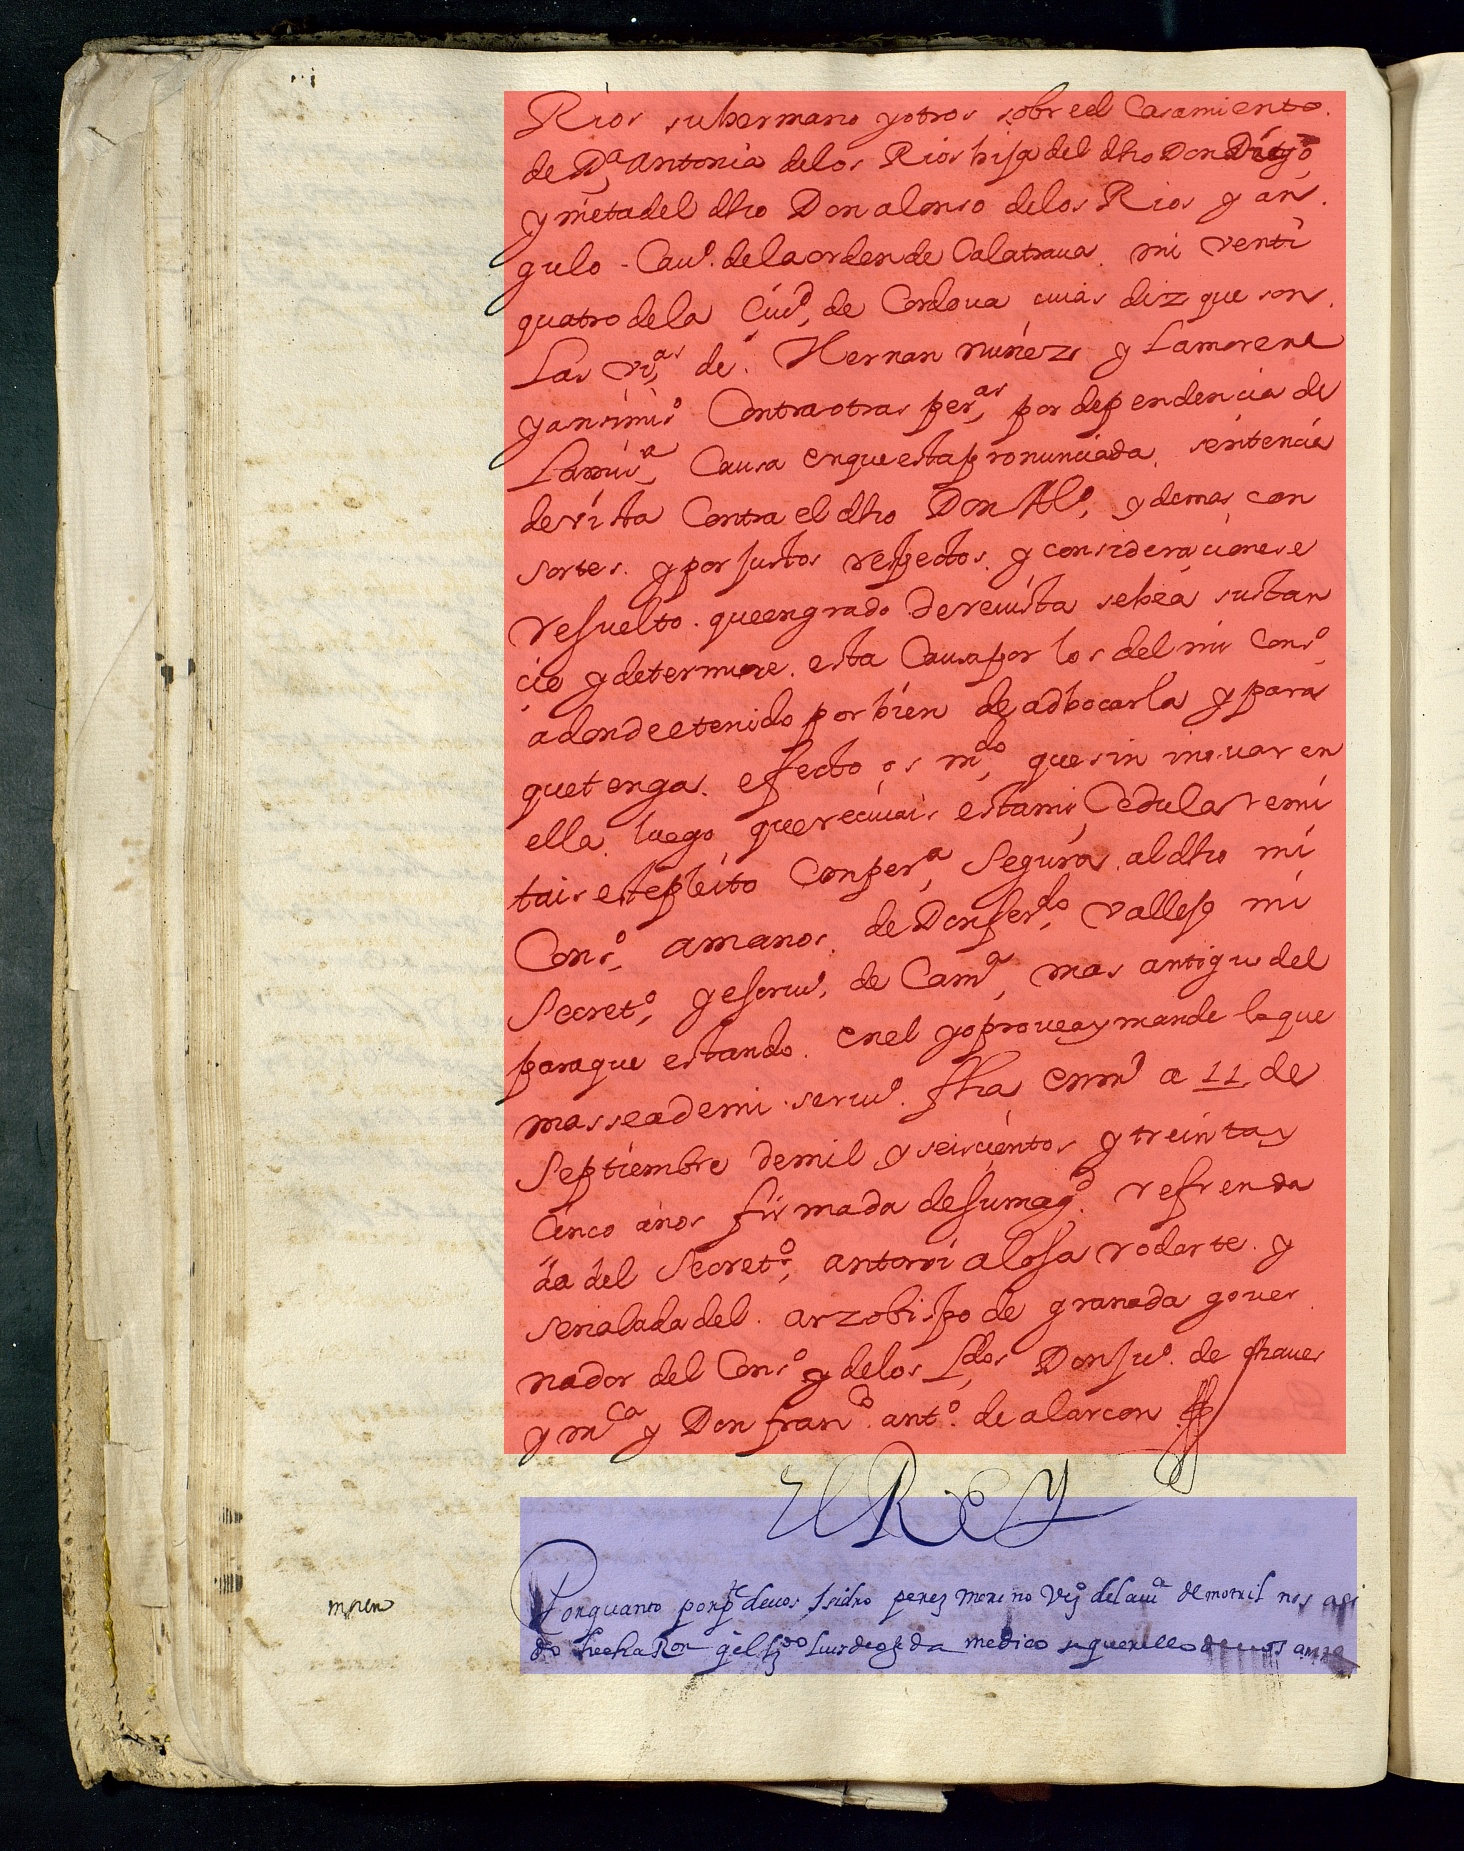 Rios su hermano y otros sobre el Casamiento.
de Dª antonia delos Rios hija del dho Don Diego
y nieta del dho Don alonso delos Rios y an.
gulo - Cauº. dela orden de Calatraua. mi venti
quatro de la Ciud. de Cordoua cuias diz que son.
Las vªs de. Hernan nuñez y Lamorena
y ansimisº Contra otras perªs por dependencia de
La misª Causa en que esta pronunciada. sentencia
de vista Contra el dho Don Alº, y demas con
sortes. y por justos respectos. y consideraciones e
resuelto. que en grado de reuista se bea sustan
cie y determine. esta Causa por los del mi Consº
adonde e tenido por bien de adbocarla y para
que tenga. efecto os mdo que sin inouar en
ella luego que reciuais esta mi Cedula remi
tais este pleito Con perª segura al dho mi
Consº amanos. de Don ferdo vallejo mi
Secretº y escriuº. de Camª mas antiguo del
para que estando. en el yo prouea y mande lo que
mas sea de mi seruº. fha en md a 11 de
septiembre de mil y seiscientos y treinta y
Cinco años firmada de su magd. refrenda
da del Secretº, antoni alosa rodarte. y
señalada del. arzobispo de granada gouer
nador del Consº y delos Ldos Don juº. de chaues
y mca y Don franº. antº. de alarcon
El Rey
Porquanto por pte de uos Isidro perez moreno vzº de la ciud de motril nos a si
do hecha Ron q el Ldo Luis de ojeda medico se querello de uos ante